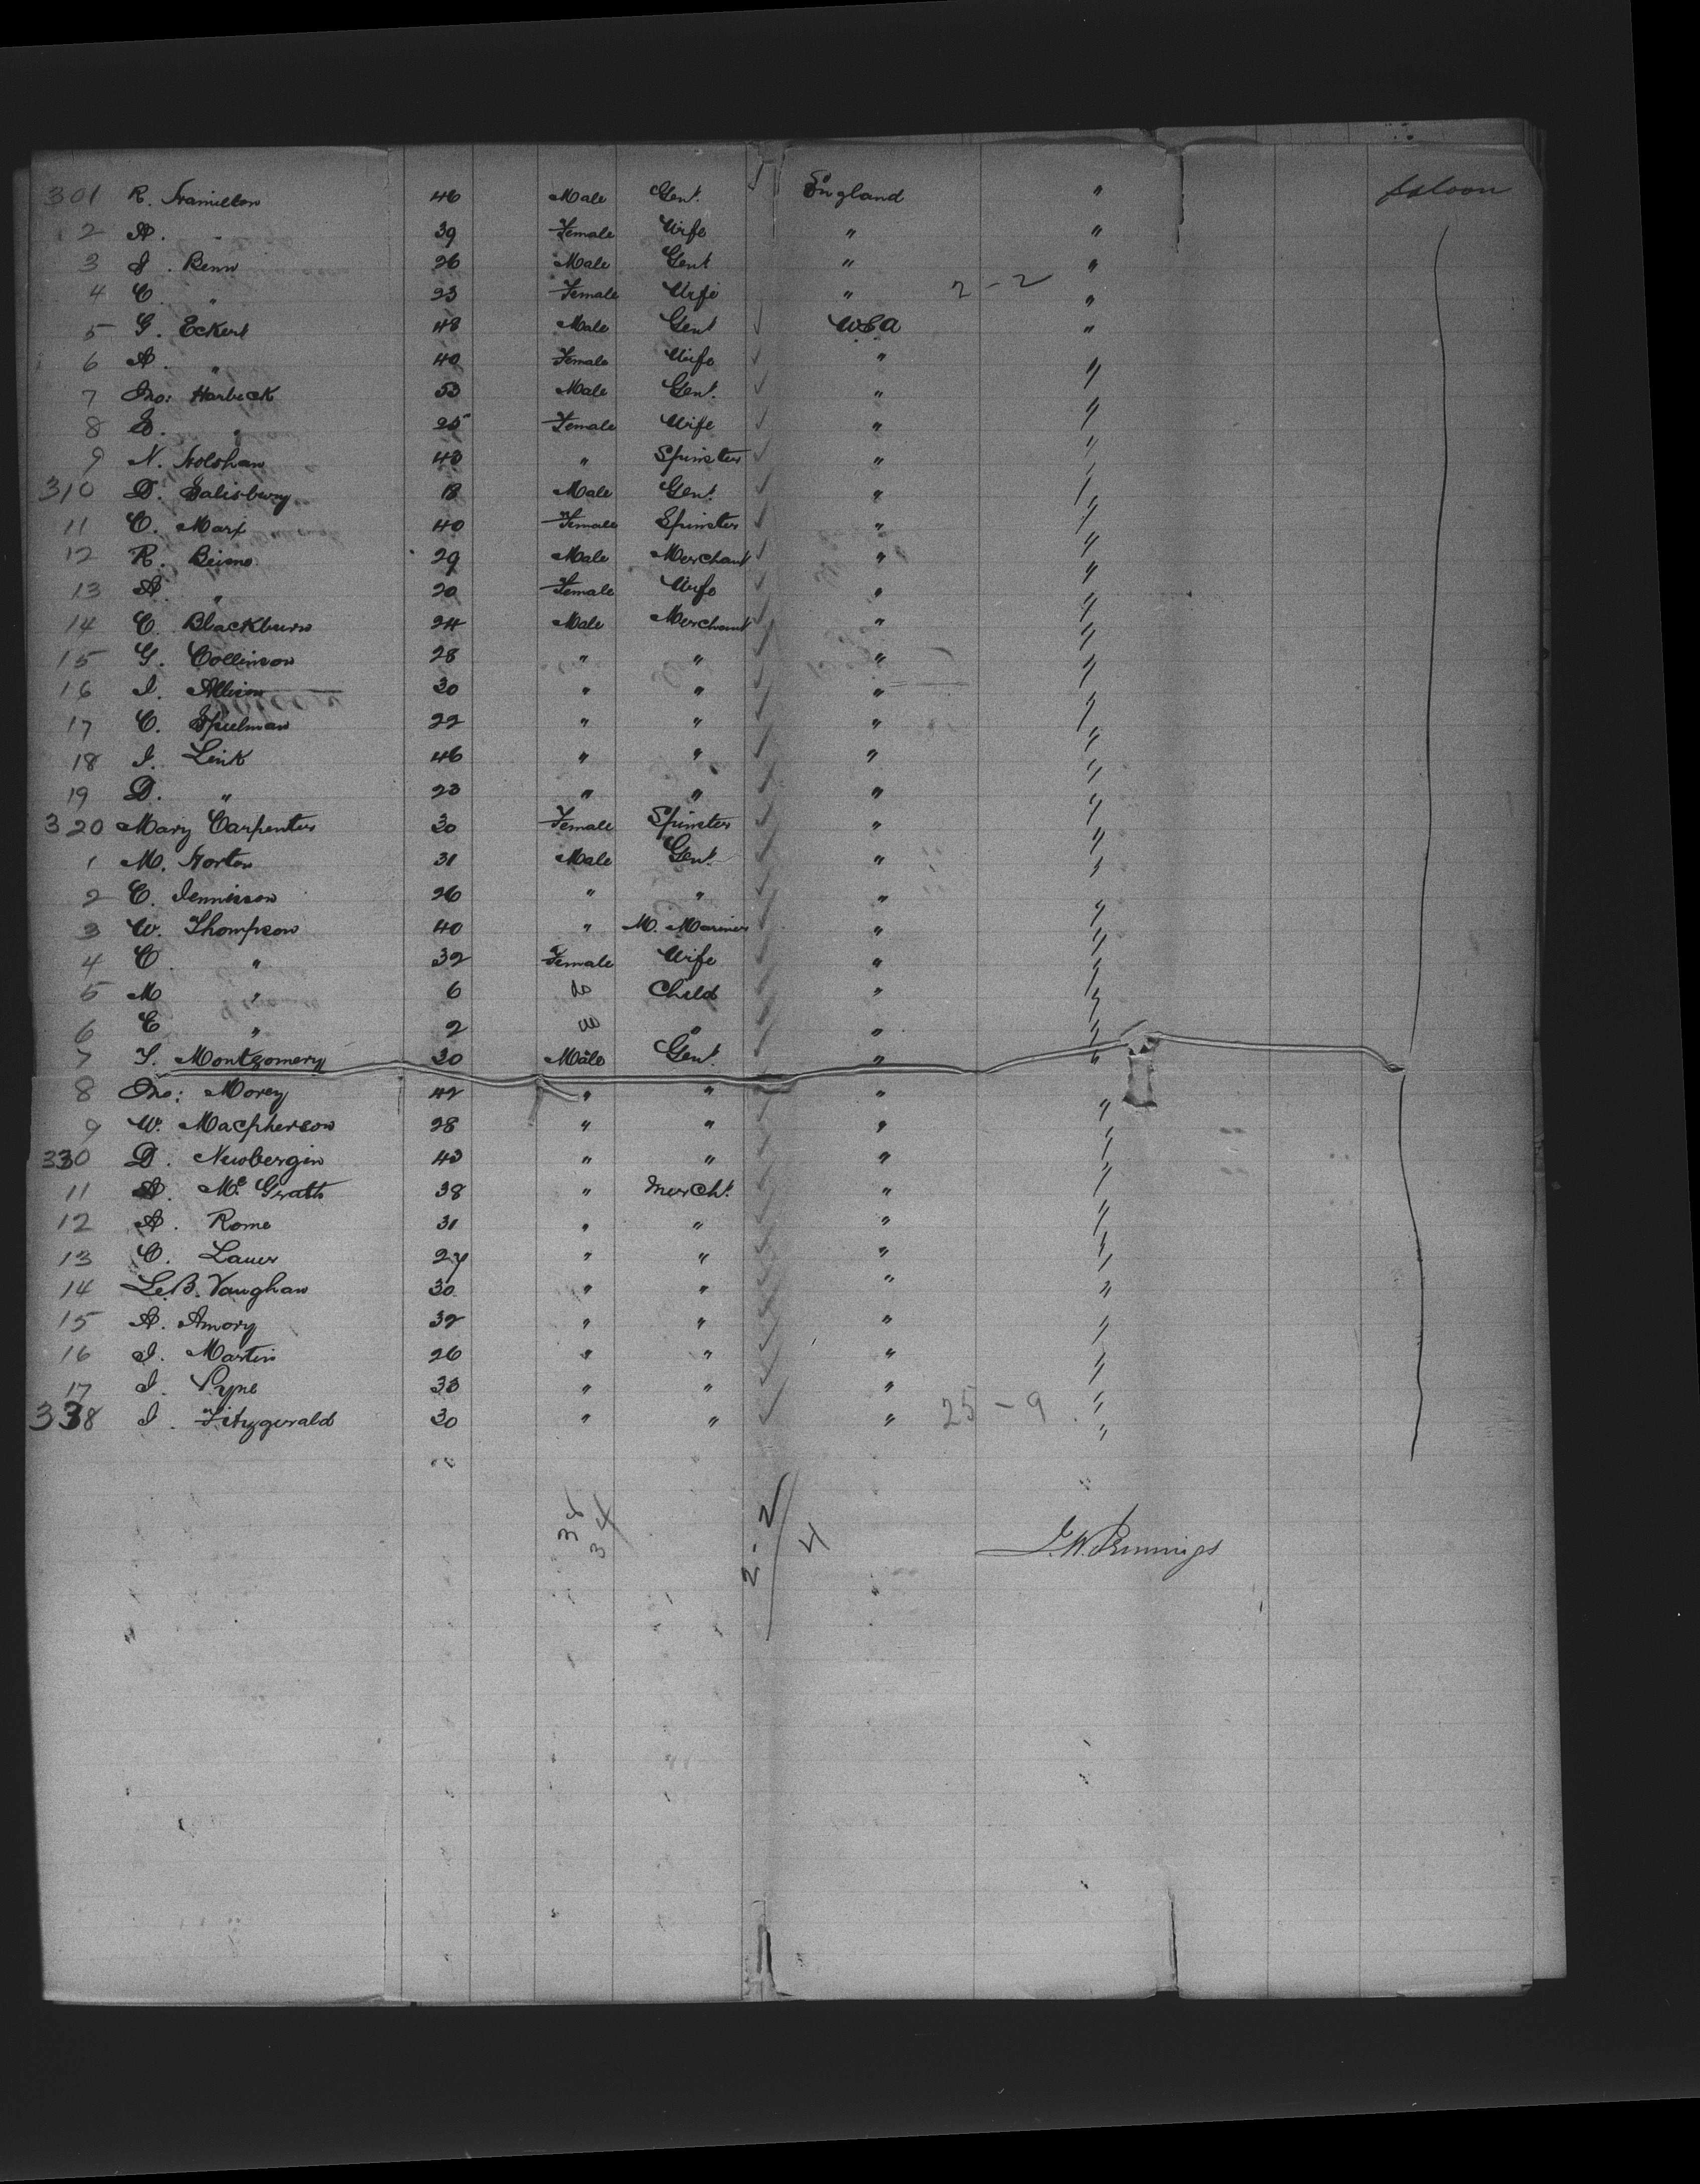 301 R. Hamilton 46 Male Gent. England " Saloon
2 A. " 39 Female Wife " "
3 J. Benn 26 Male Gent " "
4 C. " 23 Female Wife " 2 - 2 "
5 G. Eckert 48 Male Gent ✓ USA "
6 A. " 40 Female Wife ✓ " "
7 Jno: Harbeck 53 Male Gent. ✓ " "
8 E. " 25 Female Wife ✓ " "
9 N. Holohan 43 " Spinster ✓ " "
310 D. Salisbury 18 Male Gent. ✓ " "
11 C. Marx 40 Female Spinster ✓ " "
12 R. Beisno 29 Male Merchant ✓ " "
13 A. " 20 Female Wife ✓ " "
14 C. Blackburn 24 Male Merchant ✓ " "
15 G. Collinson 28 " " ✓ " "
16 J. Allison 30 " " ✓ " "
17 C. Spielman 22 " " ✓ " "
18 J. Link 46 " " ✓ " "
19 D. " 23 " " ✓ " "
320 Mary Carpenter 30 Female Spinster ✓ " "
1 M. Horton 31 Male Gent. ✓ " "
2 C. Jennisson 26 " " ✓ " "
3 W. Thompson 40 " M. Mariner ✓ " "
4 C. " 32 Female Wife ✓ " "
5 M " 6 do Child ✓ " "
6 E " 2 do " ✓ " "
7 T. Montgomery 30 Male Gent. ✓ " "
8 Jno: Morey 42 " " ✓ " "
9 W. Macpherson 28 " " ✓ " "
330 D. Newbergin 43 " " ✓ " "
11 A. McGrath 38 " Mercht. ✓ " "
12 A. Rome 31 " " ✓ " "
13 C. Lauer 27 " " ✓ " "
14 Le.B. Vaughan 30 " " ✓ " "
15 A. Amory 32 " " ✓ " "
16 J. Martin 26 " " ✓ " "
17 J. Pyne 33 " " ✓ " "
338 J. Fitzgerald 30 " " ✓ " 25 - 9 "
34
34
2 - 2
4
J.W. Jennings